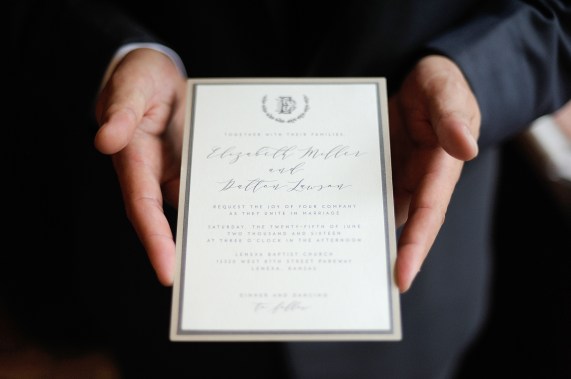 E
TOGETHER WITH THEIR FAMILIES
Elizabeth Miller
and
Dalton Lawson
REQUEST THE JOY OF YOUR COMPANY
AS THEY UNITE IN MARRIAGE
SATURDAY, THE TWENTY-FIFTH OF JUNE
TWO THOUSAND AND SIXTEEN
AT THREE O'CLOCK IN THE AFTERNOON
LENEXA BAPTIST CHURCH
WEST 87TH STREET PARKWAY
LENEXA, KANSAS
DINNER AND DANCING
to follow